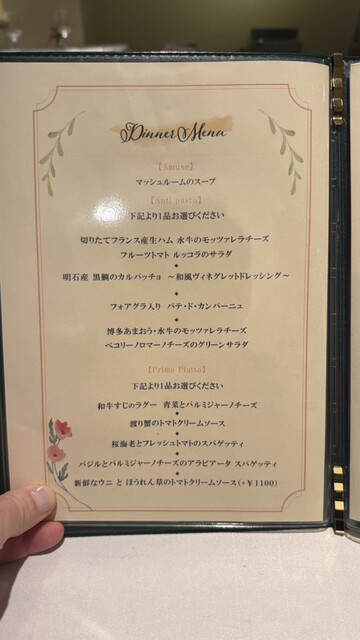 Dinner Menu
【Amuse】
マッシュルームのスープ
【Anti pasto】
下記より1品お選びください
切りたてフランス産生ハム 水牛のモッツァレラチーズ
フルーツトマト ルッコラのサラダ
◆
明石産 黒鯛のカルパッチョ ～和風ヴィネグレットドレッシング～
◆
フォアグラ入り パテ・ド・カンパーニュ
◆
博多あまおう・水牛のモッツァレラチーズ
ペコリーノロマーノチーズのグリーンサラダ
【Primo Piatto】
下記より1品お選びください
和牛すじのラグー 青菜とパルミジャーノチーズ
◆
渡り蟹のトマトクリームソース
◆
桜海老とフレッシュトマトのスパゲッティ
◆
バジルとパルミジャーノチーズのアラビアータ スパゲッティ
◆
新鮮なウニ と ほうれん草のトマトクリームソース(+￥1100)